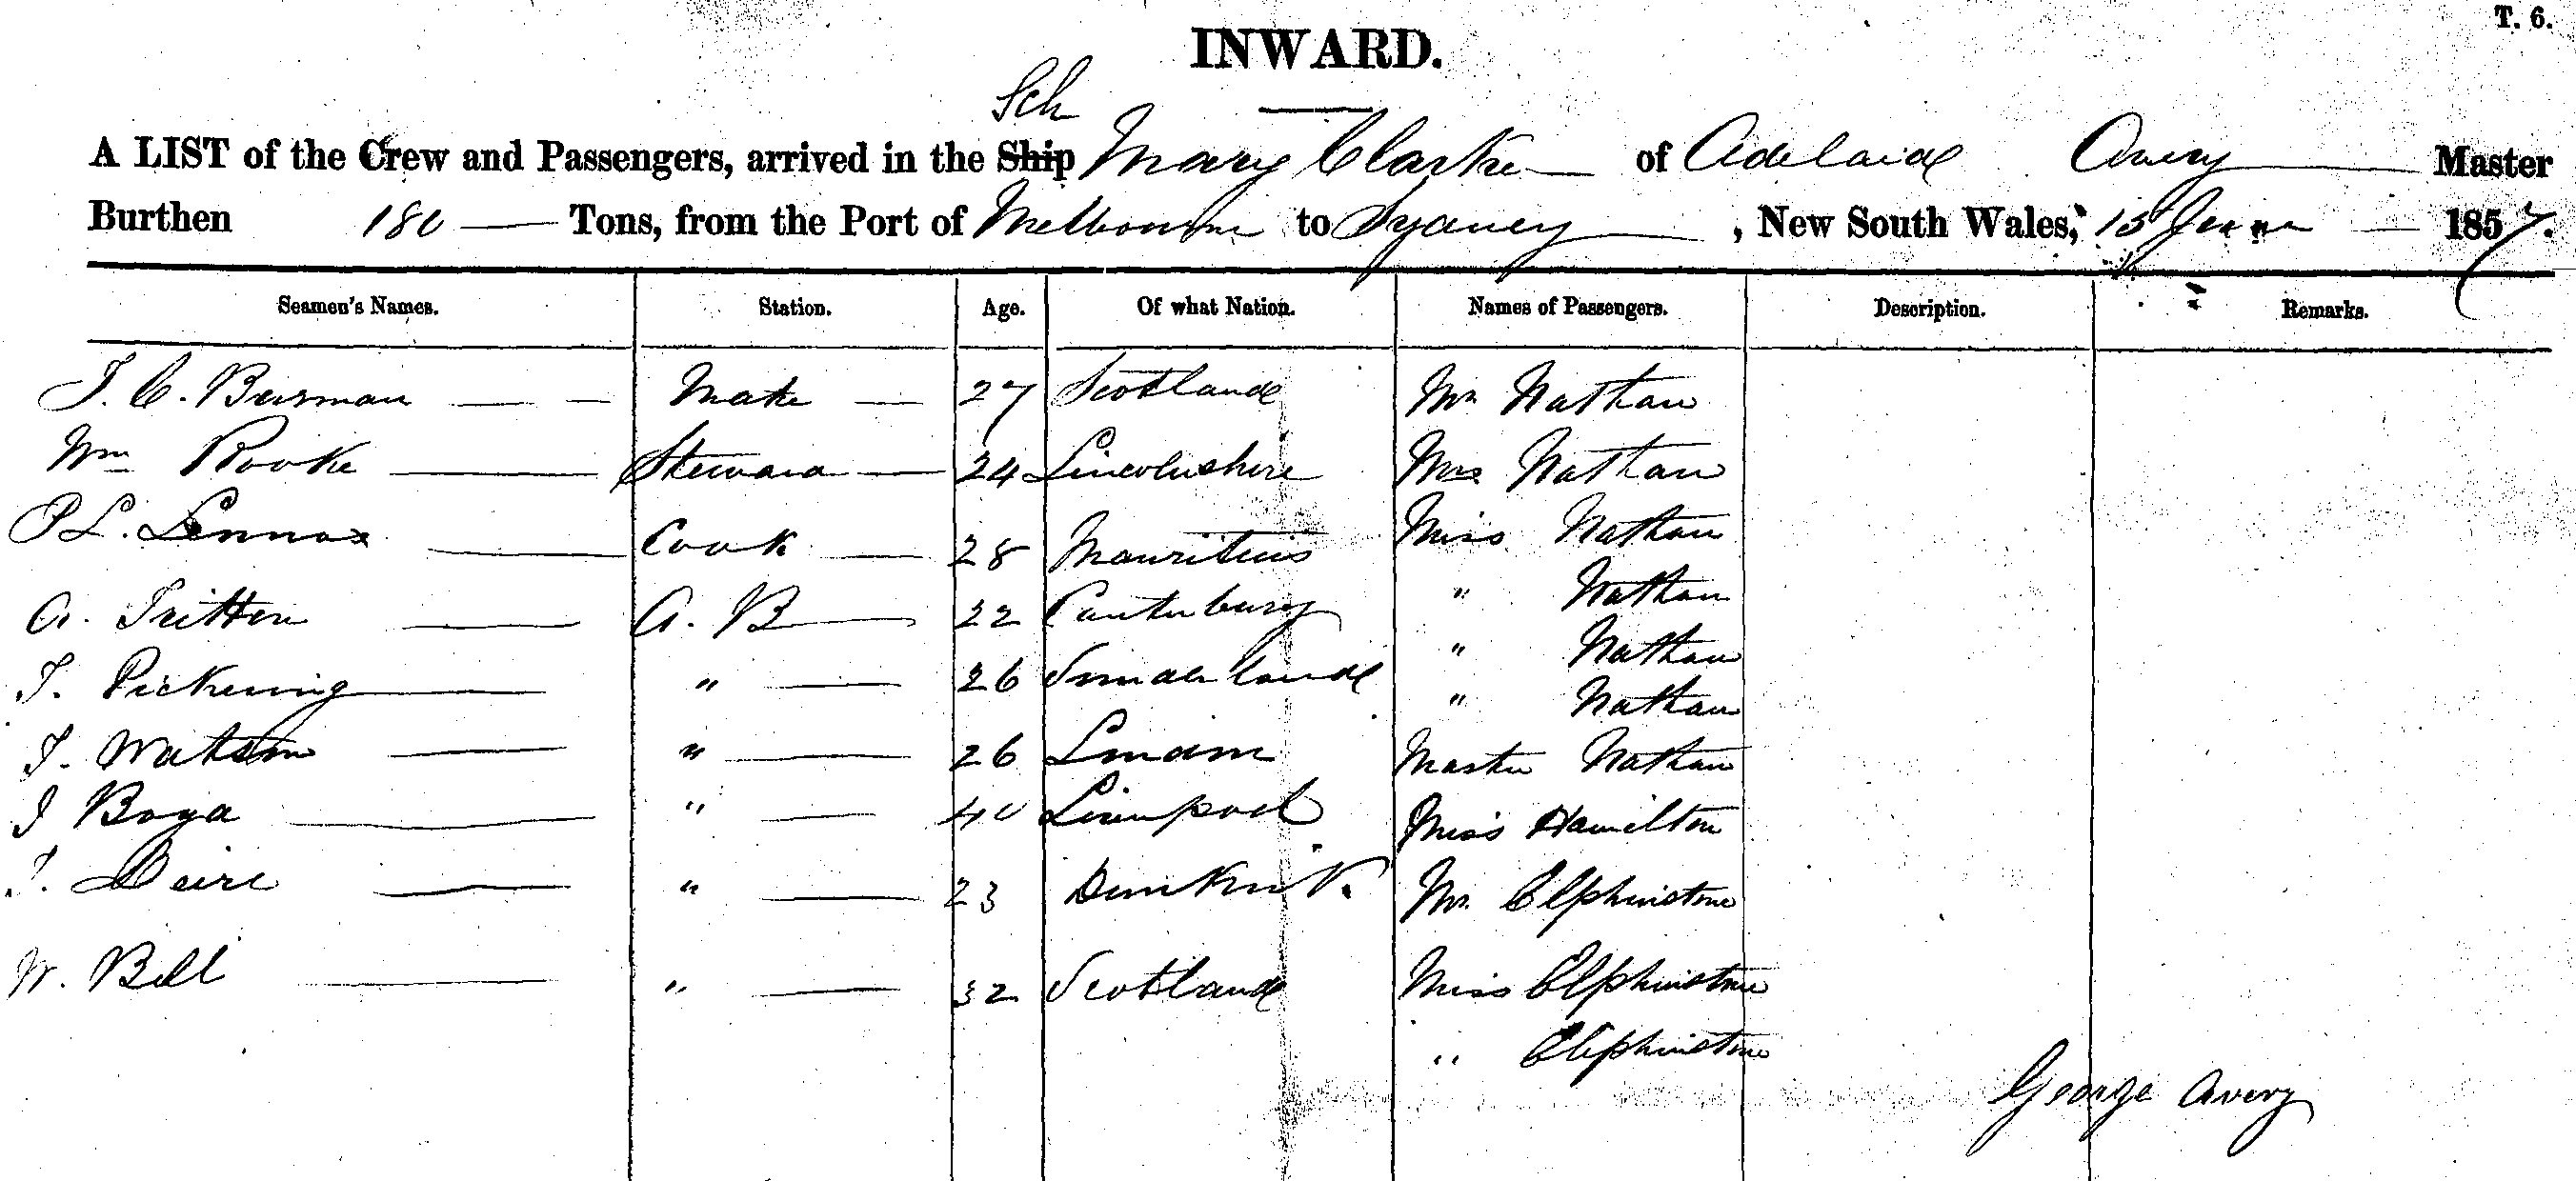 T. 6.
INWARD.
Sch
A LIST of the Crew and Passengers, arrived in the Ship Mary Clarke of Adelaide Avery Master
Burthen 180 Tons, from the Port of Melbourne to Sydney, New South Wales, 15 June 1857.
Seamen's Names. Station. Age. Of what Nation. Names of Passengers. Description. Remarks.
J. C. Mate 27 Scotland Mr Nathan
Wm Rooke Steward 24 Lincolnshire Mrs Nathan
P L. Lennox Cook 28 Mauritius Miss Nathan
A. Tritton A. B 22 Canterbury " Nathan
J. Pickering " 26 Sunderland " Nathan
" Nathan
J. Watson " 26 London Master Nathan
J Boyd " 40 Liverpool Miss Hamilton
J. " 23 Dunkirk. Mr. Elphinstone
W. Bell " 32 Scotland Miss Elphinstone
" Elphinstone
George Avery